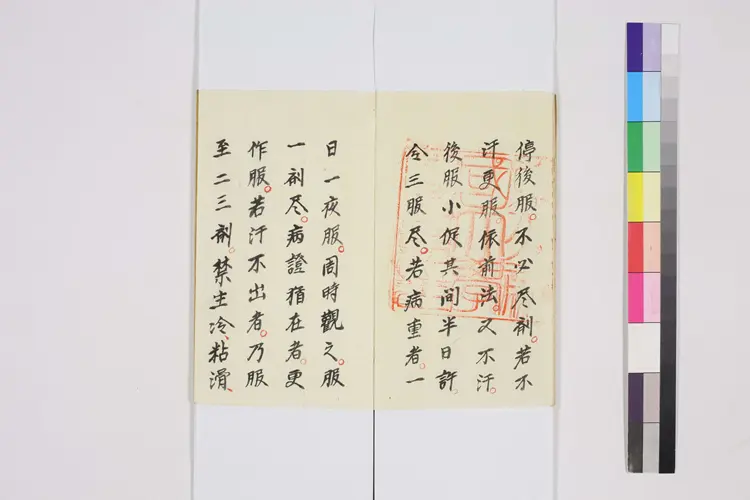 停後服。不必尽剤。若不
汗更服。依前法。又不汗。
後服小促其間半日許。
令三服尽。若病重者。一
日一夜服。周時觀之。服
一剤尽。病證猶在者。更
作服。若汗不出者。乃服
至二三剤。禁生冷、粘滑、